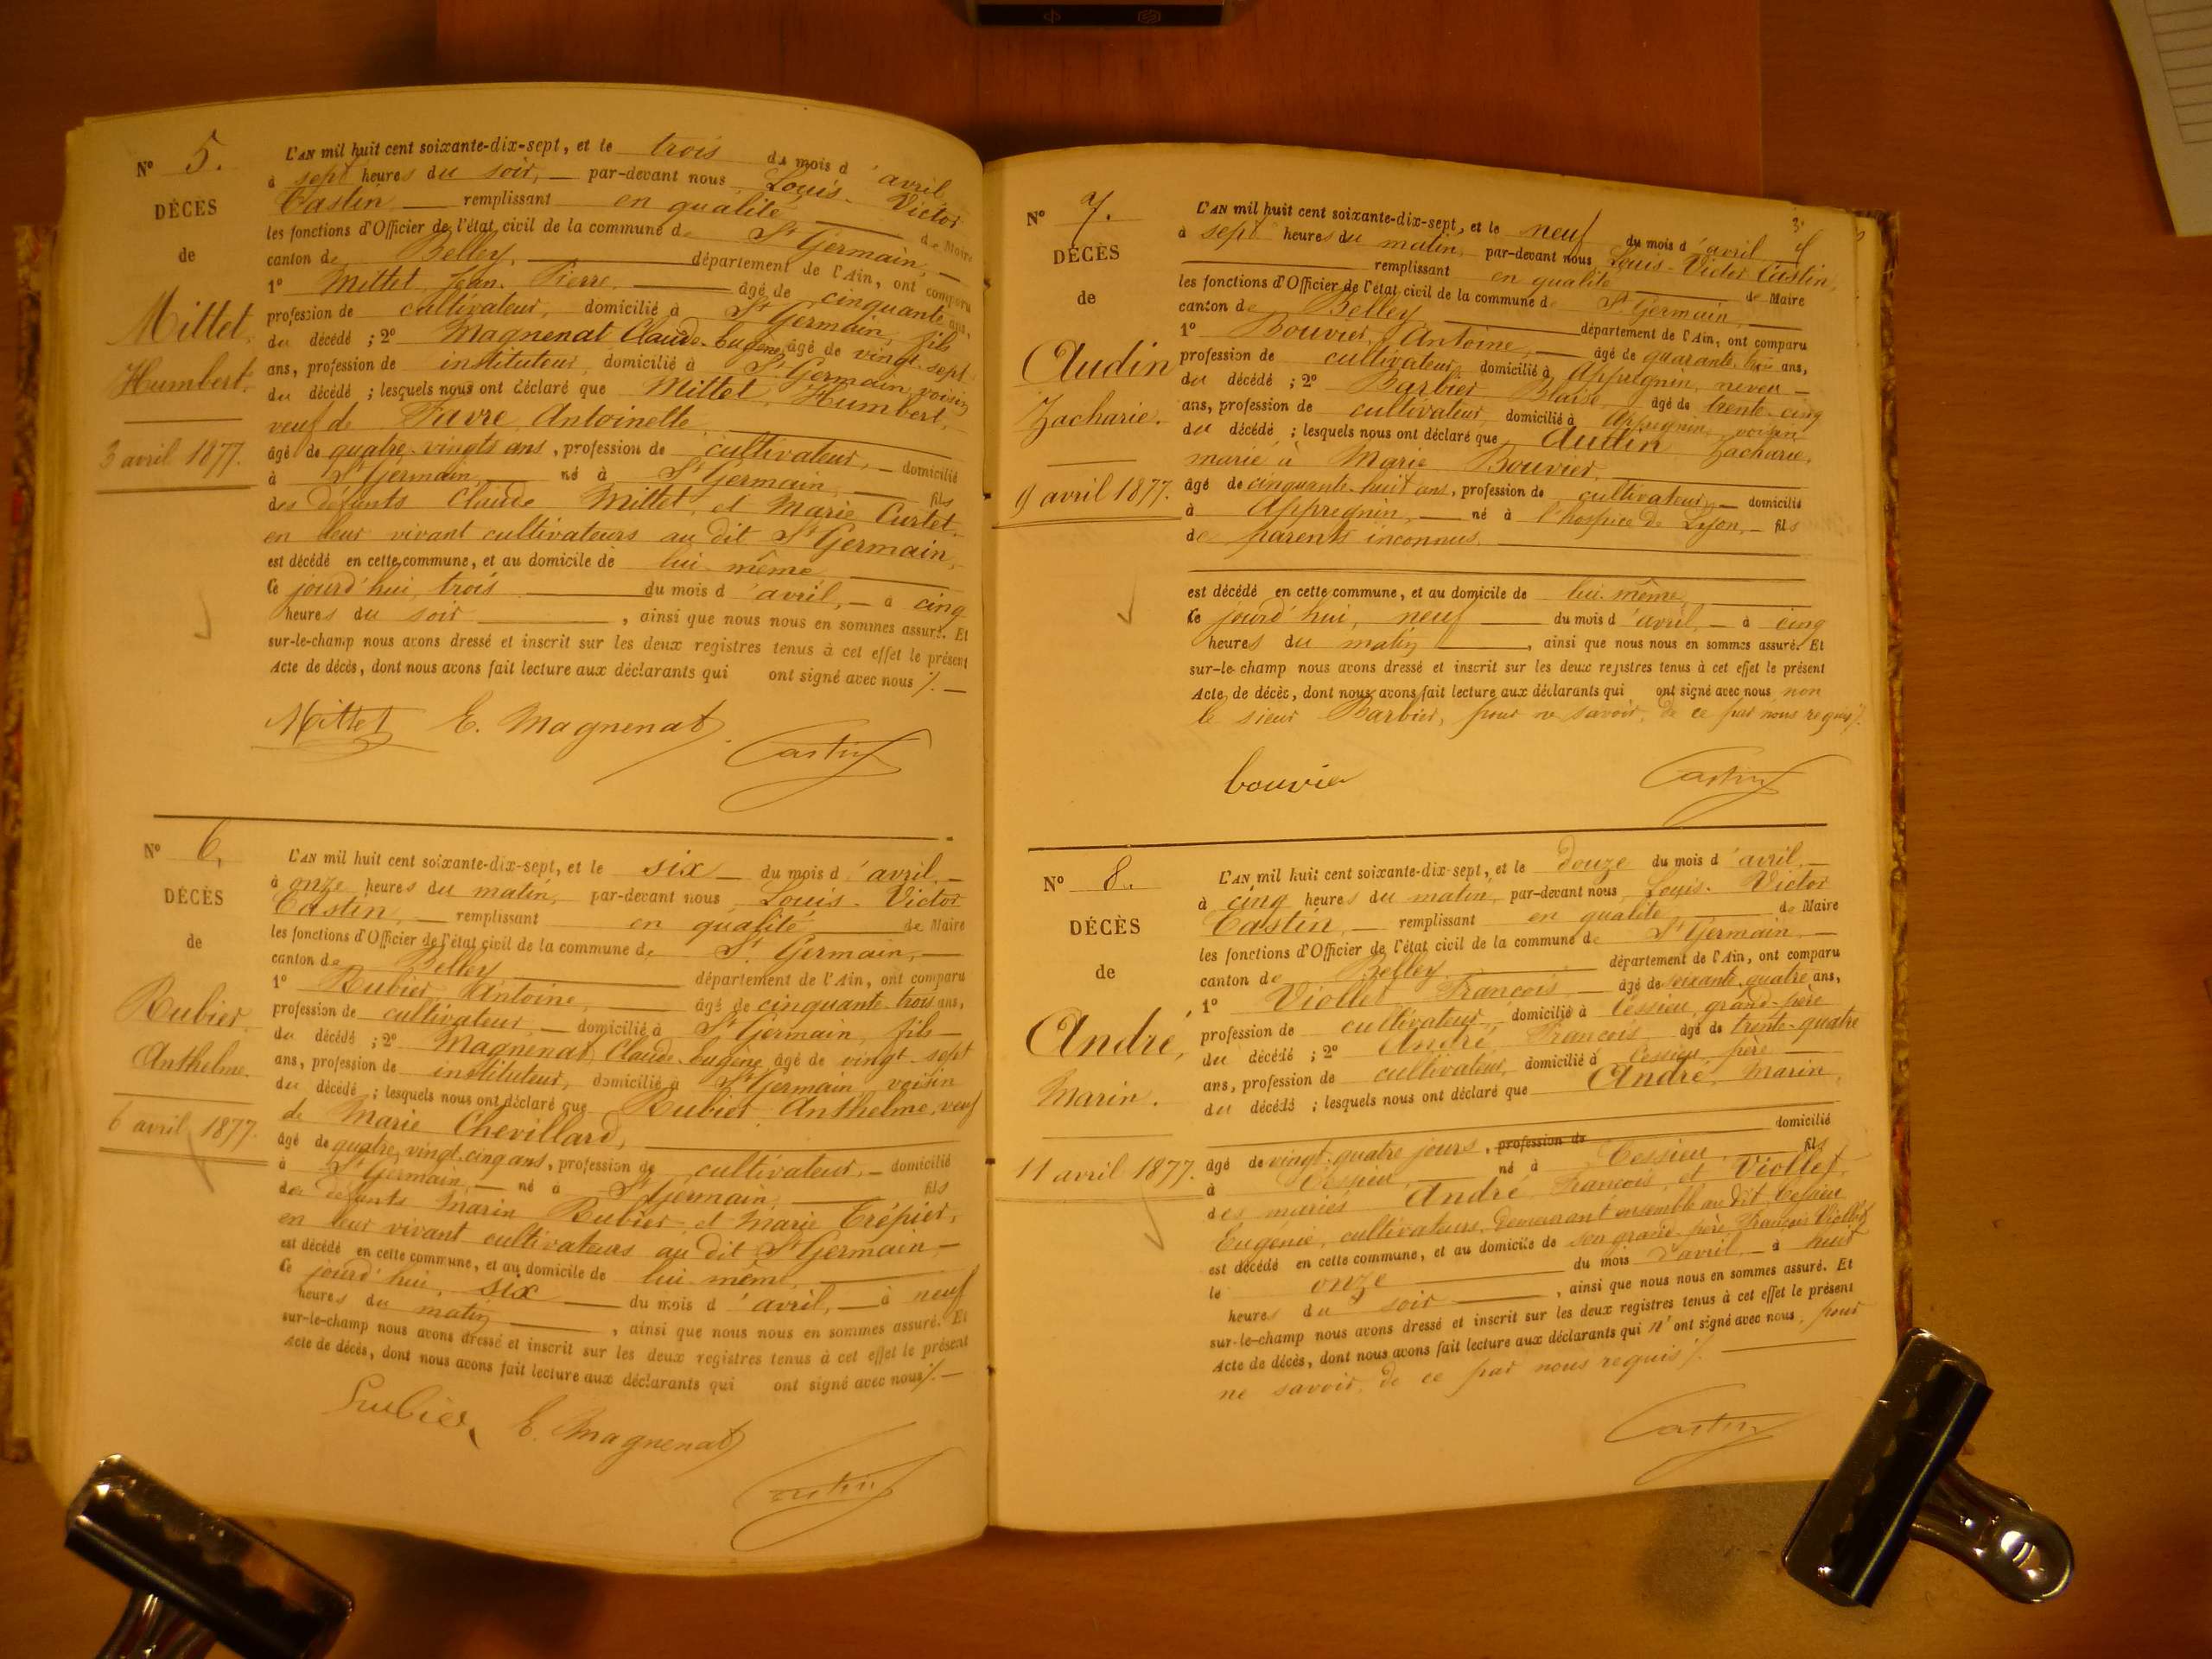 N° 5.
DÉCÈS
de
Mittet
Humbert.
3 avril 1877.
L'AN mil huit cent soixante-dix-sept, et le trois du mois d'avril
à sept heures du soir, — par-devant nous Louis-Victor
Castin — remplissant en qualité de Maire
les fonctions d'Officier de l'état civil de la commune de St Germain, —
canton de Belley, département de l'Ain, ont comparu
1° Mittet Jean-Pierre, âgé de cinquante ans,
profession de cultivateur, domicilié à St Germain, fils
du décédé ; 2° Magnenat Claude-Eugène, âgé de vingt-sept
ans, profession de instituteur, domicilié à St Germain, voisin
du décédé ; lesquels nous ont déclaré que Mittet, Humbert,
veuf de Favre Antoinette
âgé de quatre-vingts ans, profession de cultivateur, — domicilié
à St Germain, né à St Germain, fils
des défunts Claude Mittet, et Marie Curtet,
en leur vivant cultivateurs au dit St Germain,
est décédé en cette commune, et au domicile de lui-même
Ce jourd'hui, trois du mois d'avril, — à cinq
heures du soir, ainsi que nous nous en sommes assuré. Et
sur-le-champ nous avons dressé et inscrit sur les deux registres tenus à cet effet le présent
Acte de décès, dont nous avons fait lecture aux déclarants qui ont signé avec nous ./. —
Mittet E. Magnenat
Castin
N° 6.
DÉCÈS
de
Rubier
Anthelme.
6 avril 1877.
L'AN mil huit cent soixante-dix-sept, et le six — du mois d'avril —
à onze heures du matin, par-devant nous Louis-Victor
Castin, — remplissant en qualité de Maire
les fonctions d'Officier de l'état civil de la commune de St Germain, —
canton de Belley département de l'Ain, ont comparu
1° Rubier Antoine, âgé de cinquante-trois ans,
profession de cultivateur — domicilié à St Germain, fils —
du décédé ; 2° Magnenat Claude-Eugène, âgé de vingt-sept
ans, profession de instituteur, domicilié à St Germain voisin
du décédé ; lesquels nous ont déclaré que Rubier, Anthelme, veuf
de Marie Chevillard,
âgé de quatre-vingt-cinq ans, profession de cultivateur, — domicilié
à St Germain, — né à St Germain fils
des défunts Marin Rubier et Marie Trépier,
en leur vivant cultivateurs au dit St Germain —
est décédé en cette commune, et au domicile de lui-même,
Ce jourd'hui, six — du mois d'avril, — à neuf
heures du matin, ainsi que nous nous en sommes assuré. Et
sur-le-champ nous avons dressé et inscrit sur les deux registres tenus à cet effet le présent
Acte de décès, dont nous avons fait lecture aux déclarants qui ont signé avec nous ./. —
Rubier E. Magnenat
Castin
N° 7.
DÉCÈS
de
Audin
Zacharie.
9 avril 1877.
L'AN mil huit cent soixante-dix-sept, et le neuf du mois d'avril
à sept heures du matin, par-devant nous Louis-Victor Castin,
remplissant en qualité de Maire
les fonctions d'Officier de l'état civil de la commune de St Germain,
canton de Belley département de l'Ain, ont comparu
1° Bouvier, Antoine, — âgé de quarante-trois ans,
profession de cultivateur, domicilié à Appregnin, neveu —
du décédé ; 2° Barbier Blaise âgé de trente-cinq
ans, profession de cultivateur domicilié à Appregnin, voisin
du décédé ; lesquels nous ont déclaré que Audin Zacharie,
marié à Marie Bouvier,
âgé de cinquante-huit ans, profession de cultivateur, — domicilié
à Appregnin, — né à l'hospice de Lyon, — fils
de parents inconnus
est décédé en cette commune, et au domicile de lui-même
Ce jourd'hui, neuf — du mois d'avril, — à cinq
heures du matin, ainsi que nous nous en sommes assuré. Et
sur-le-champ nous avons dressé et inscrit sur les deux registres tenus à cet effet le présent
Acte de décès, dont nous avons fait lecture aux déclarants qui ont signé avec nous non
le sieur Barbier, pour ne savoir, de ce par nous requis ./.
bouvier Castin
N° 8.
DÉCÈS
de
André,
Marin.
11 avril 1877.
L'AN mil huit cent soixante-dix-sept, et le douze du mois d'avril —
à cinq heures du matin, par-devant nous Louis-Victor
Castin, — remplissant en qualité de Maire
les fonctions d'Officier de l'état civil de la commune de St Germain, —
canton de Belley département de l'Ain, ont comparu
1° Viollet François — âgé de soixante-quatre ans,
profession de cultivateur, domicilié à Cessieu, grand-père
du décédé ; 2° André François âgé de trente-quatre
ans, profession de cultivateur, domicilié à Cessieu, père
du décédé ; lesquels nous ont déclaré que André, Marin,
âgé de vingt-quatre jours, profession de domicilié
à Cessieu, né à Cessieu, fils
des mariés André François, et Viollet
Eugénie, cultivateurs, demeurant ensemble au dit Cessieu
est décédé en cette commune, et au domicile de son grand-père, François Viollet
le onze du mois d'avril — à huit
heures du soir, ainsi que nous nous en sommes assuré. Et
sur-le-champ nous avons dressé et inscrit sur les deux registres tenus à cet effet le présent
Acte de décès, dont nous avons fait lecture aux déclarants qui n'ont signé avec nous, pour
ne savoir, de ce par nous requis ./.
Castin